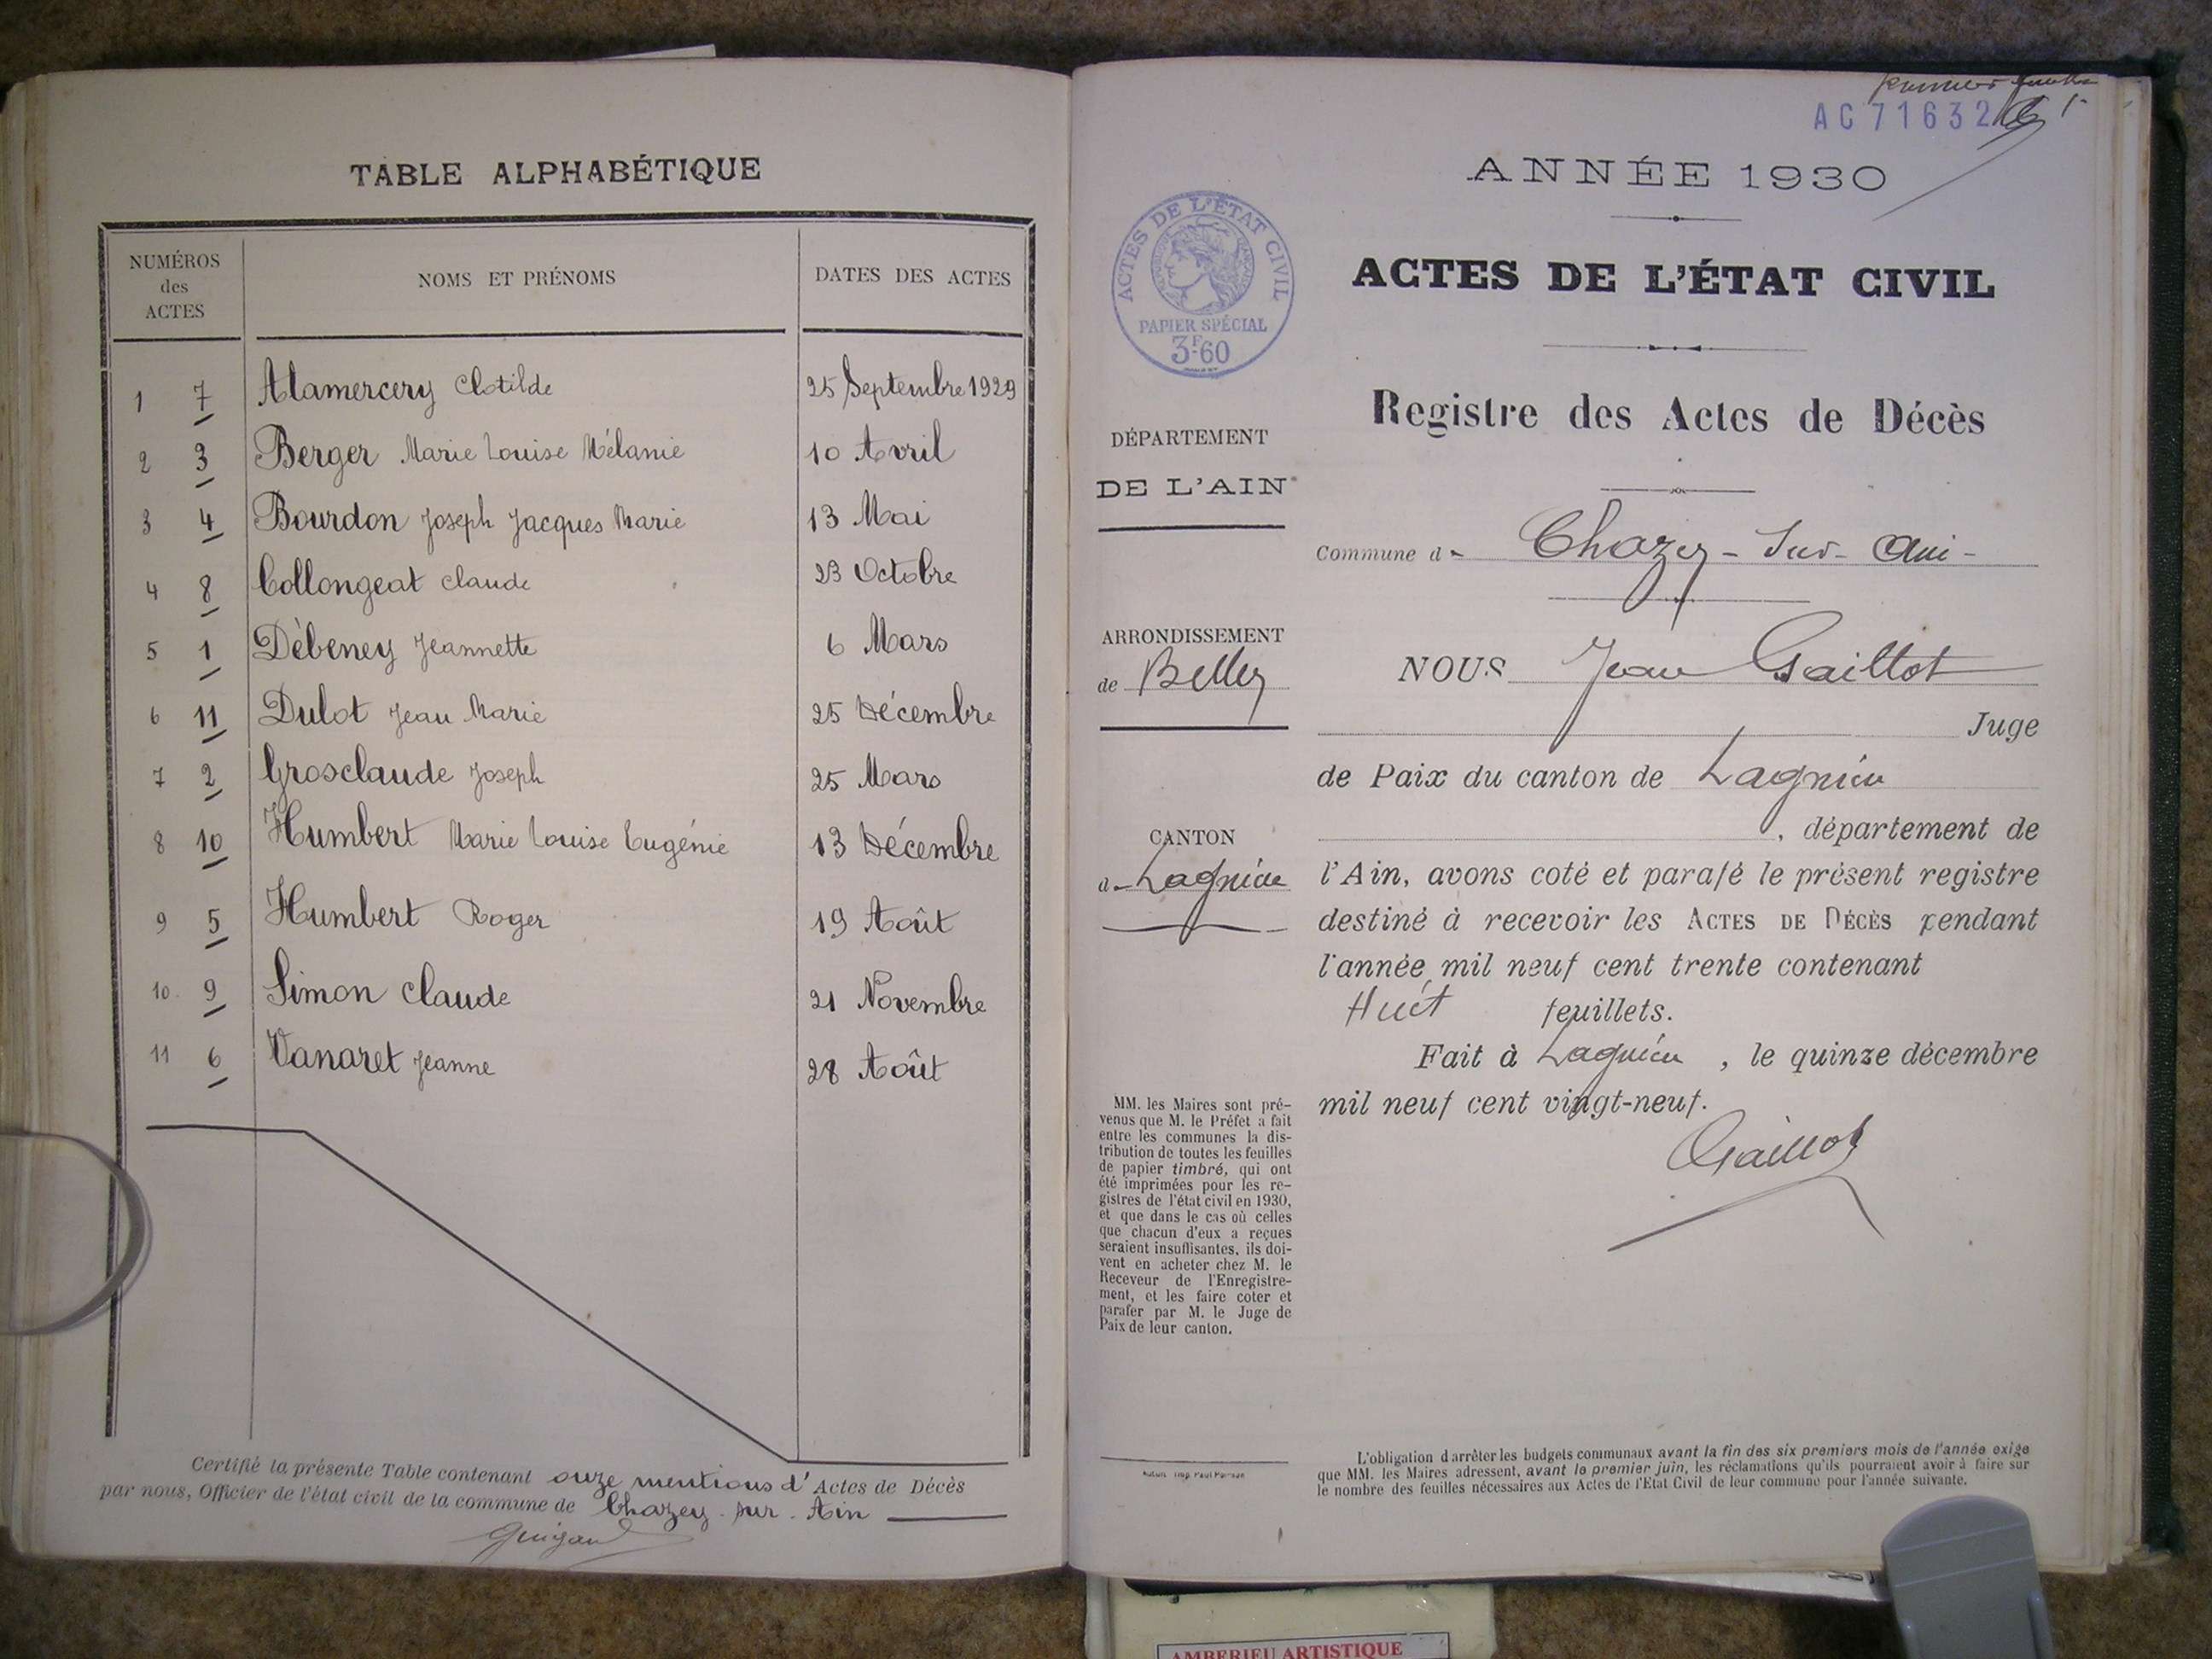 TABLE ALPHABÉTIQUE
NUMÉROS des ACTES NOMS ET PRÉNOMS DATES DES ACTES
1 7 Alamercery Clotilde 25 Septembre 1929
2 3 Berger Marie Louise Mélanie 10 Avril
3 4 Bourdon Joseph Jacques Marie 13 Mai
4 8 Collongeat Claude 23 Octobre
5 1 Dèbeney Jeannette 6 Mars
6 11 Dulot Jean Marie 25 Décembre
7 2 Grosclaude Joseph 25 Mars
8 10 Humbert Marie Louise Eugénie 13 Décembre
9 5 Humbert Roger 19 Août
10 9 Simon Claude 21 Novembre
11 6 Vanaret Jeanne 28 Août
Certifié la présente Table contenant onze mentions d' Actes de Décès
par nous, Officier de l'état civil de la commune de Chazey-sur-Ain
premier
AC 71632
ANNÉE 1930
ACTES DE L'ÉTAT CIVIL
PAPIER SPÉCIAL
3F60
ACTES DE L'ÉTAT CIVIL
Registre des Actes de Décès
DÉPARTEMENT
DE L'AIN
Commune d Chazey-Sur-Ain-
ARRONDISSEMENT
de Belley
NOUS Jean Gaillot
Juge
de Paix du canton de Lagnieu
, département de
CANTON
d Lagnieu
l'Ain, avons coté et parafé le présent registre
destiné à recevoir les ACTES DE DÉCÈS pendant
l'année mil neuf cent trente contenant
Huit feuillets.
Fait à Lagnieu , le quinze décembre
mil neuf cent vingt-neuf.
Gaillot
MM. les Maires sont pré-
venus que M. le Préfet a fait
entre les communes la dis-
tribution de toutes les feuilles
de papier timbré, qui ont
été imprimées pour les re-
gistres de l'état civil en 1930,
et que dans le cas où celles
que chacun d'eux a reçues
seraient insuffisantes, ils doi-
vent en acheter chez M. le
Receveur de l'Enregistre-
ment, et les faire coter et
parafer par M. le Juge de
Paix de leur canton.
L'obligation d'arrêter les budgets communaux avant la fin des six premiers mois de l'année exige
que MM. les Maires adressent, avant le premier juin, les réclamations qu'ils pourraient avoir à faire sur
le nombre des feuilles nécessaires aux Actes de l'Etat Civil de leur commune pour l'année suivante.
AMBERIEU ARTISTIQUE